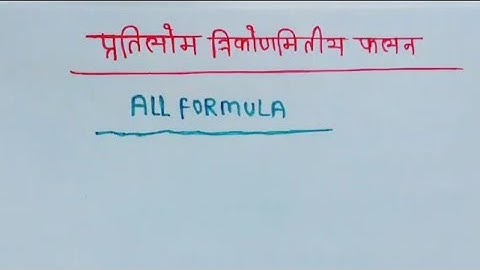 प्रतिलोम त्रिकोणमितीय फलन
ALL FORMULA